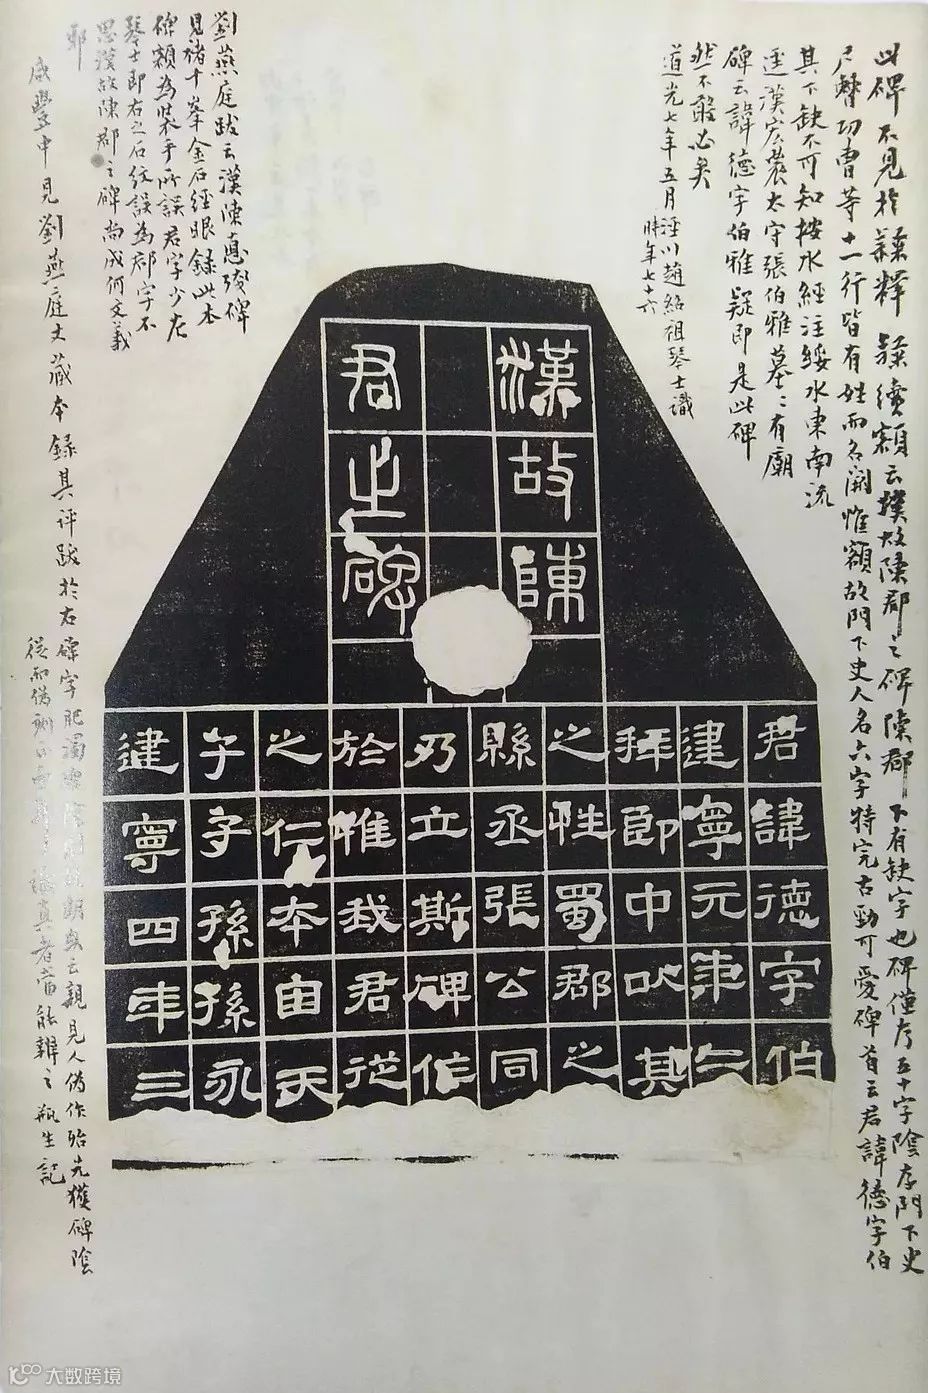 此碑不見於隸釋隸續額云漢故陳郡之碑陳郡下有缺字也碑僅存五十字陰存門下史
功曹等十一行皆有姓而名闕惟額故門下史人名六字特完古勁可愛碑首云君諱德字伯
其下缺不可知按水經注綏水東南流
逕漢宏農太守張伯雅墓〻有廟
碑云諱德字伯雅疑即是此碑
然不敢必矣
道光七年五月涇川趙紹祖琴士識
時年七十六
漢故陳
君之碑
君諱德字伯
建寧元年
拜郎中其
之性蜀郡之
縣丞張公同
乃立斯碑作
於惟我君從
之仁本由天
子子孫孫永
建寧四年三
劉燕庭跋云漢陳悳殘碑
見褚千峯金石經眼錄此本
碑額為裝手所誤君字少左
琴士即右之石紋誤為郡字不
思漢故陳郡之碑尚成何文義
耶
咸豐中見劉燕庭丈藏本錄其評跋於右
碑字肥濁云親見人偽作殆先獲碑陰
從而偽真者當能辨之 瓶生記
大数跨境